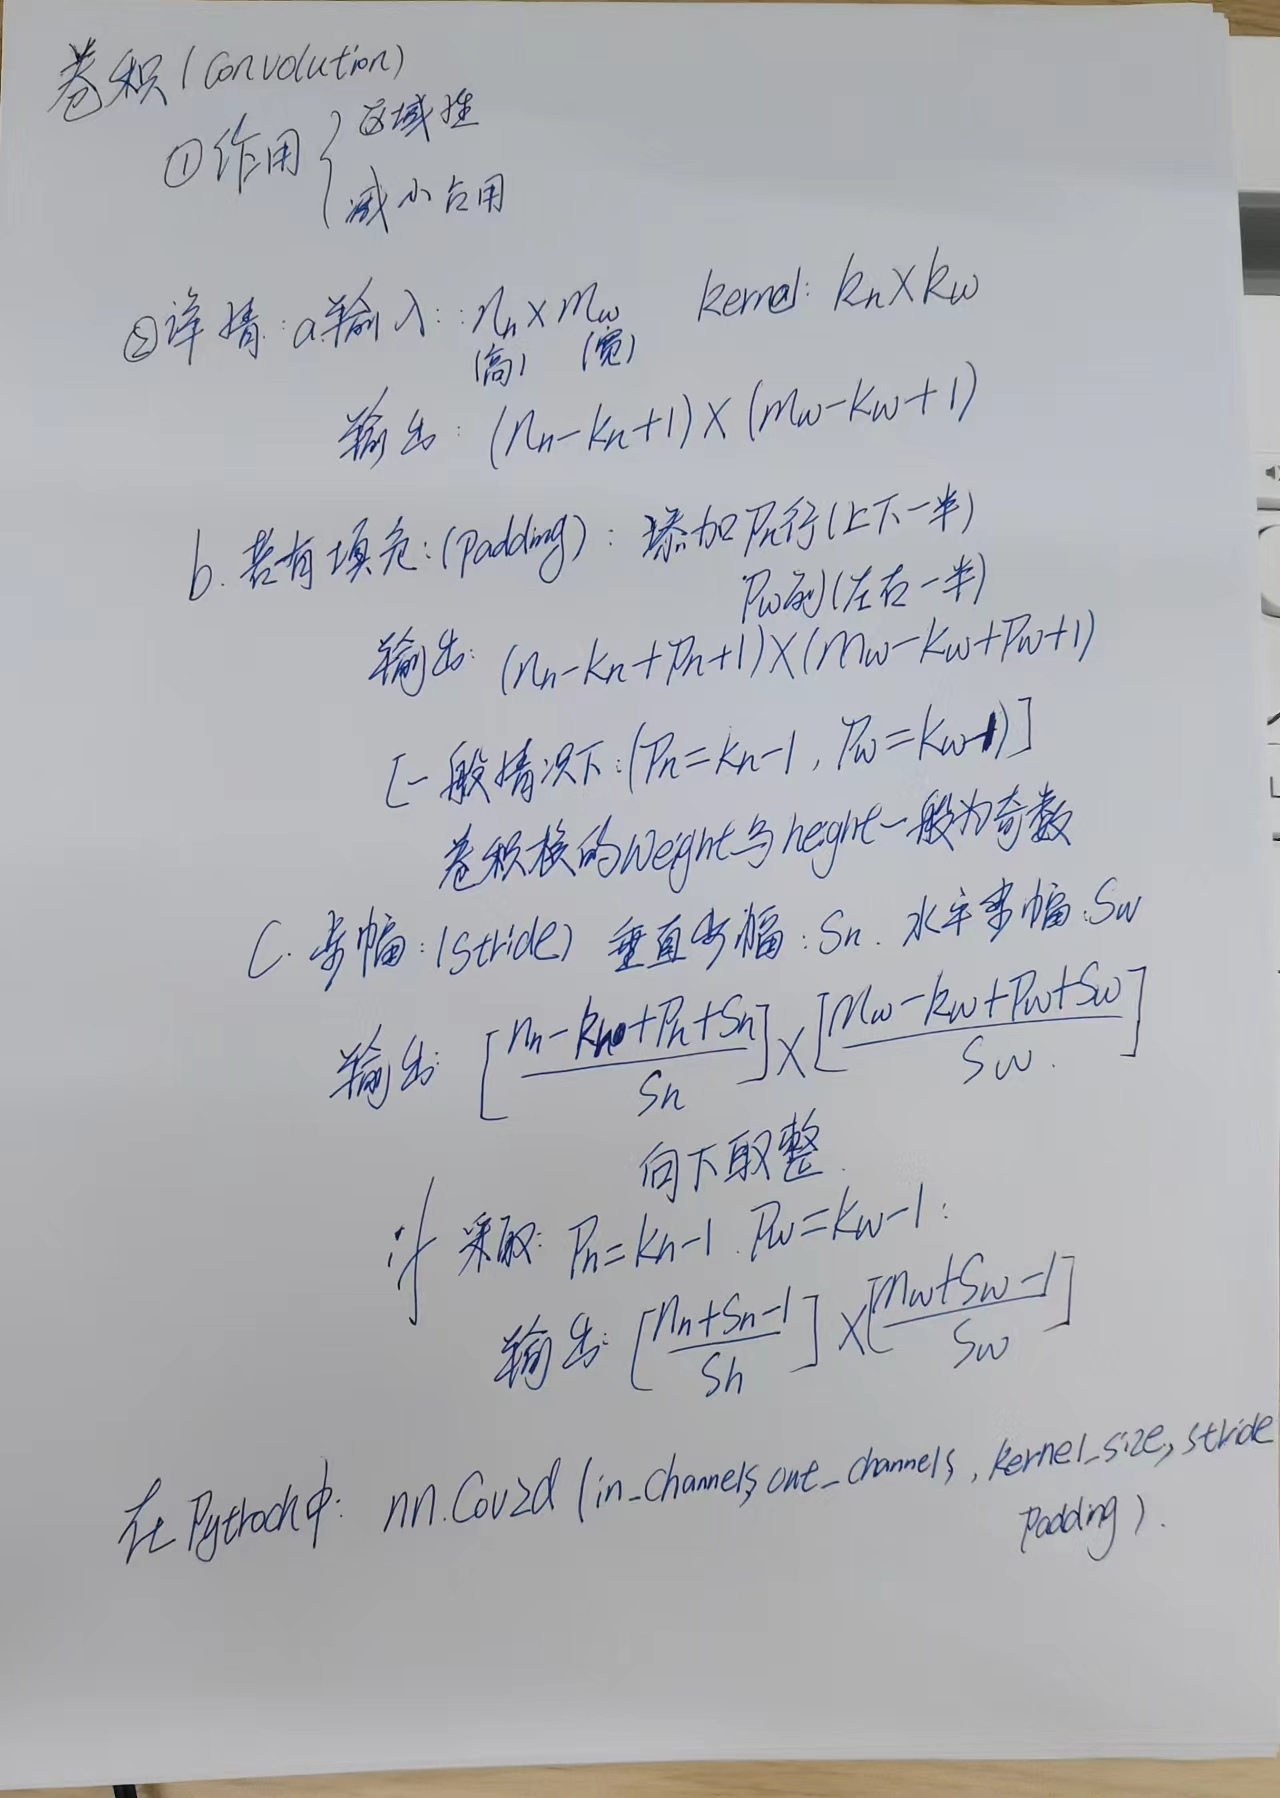 卷积(Convolution)
①作用{区域性
减小占用
②详情:a.输入: nₙ×m_w kernel: kₙ×k_w
(高) (宽)
输出: (nₙ-kₙ+1)×(m_w-k_w+1)
b.若有填充:(padding): 添加Pₙ行(上下一半)
P_w列(左右一半)
输出: (nₙ-kₙ+Pₙ+1)×(m_w-k_w+P_w+1)
[一般情况下:(Pₙ=kₙ-1, P_w=k_w-1)]
卷积核的weight与height一般为奇数
C.步幅:(stride) 垂直步幅:Sₙ. 水平步幅:S_w
输出: [(nₙ-kₙ+Pₙ+Sₙ)/Sₙ]×[(m_w-k_w+P_w+S_w)/S_w]
向下取整.
if 采取: Pₙ=kₙ-1. P_w=k_w-1:
输出: [(nₙ+Sₙ-1)/Sₙ]×[(m_w+S_w-1)/S_w]
在Pytroch中: nn.Cov2d (in_channels, out_channels, kernel_size, stride
padding).